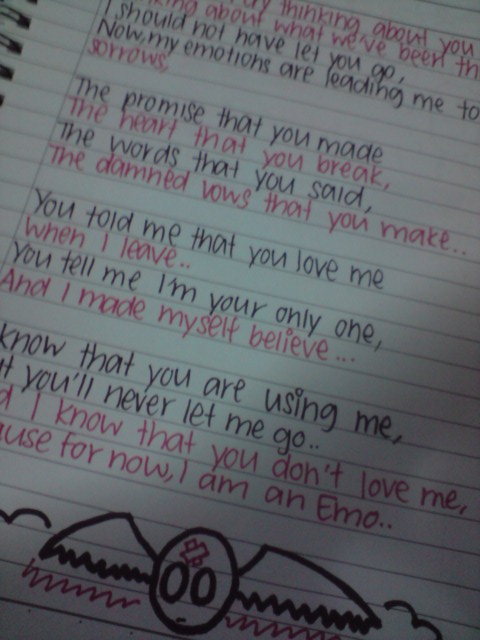 thinking about you
king about what we've been th
I should not have let you go,
Now, my emotions are leading me to
sorrows,
The promise that you made
The heart that you break,
The words that you said,
The damned vows that you make..
You told me that you love me
when I leave..
You tell me I'm your only one,
And I made myself believe...
know that you are using me,
t you'll never let me go..
d I know that you don't love me,
ause for now, I am an Emo..